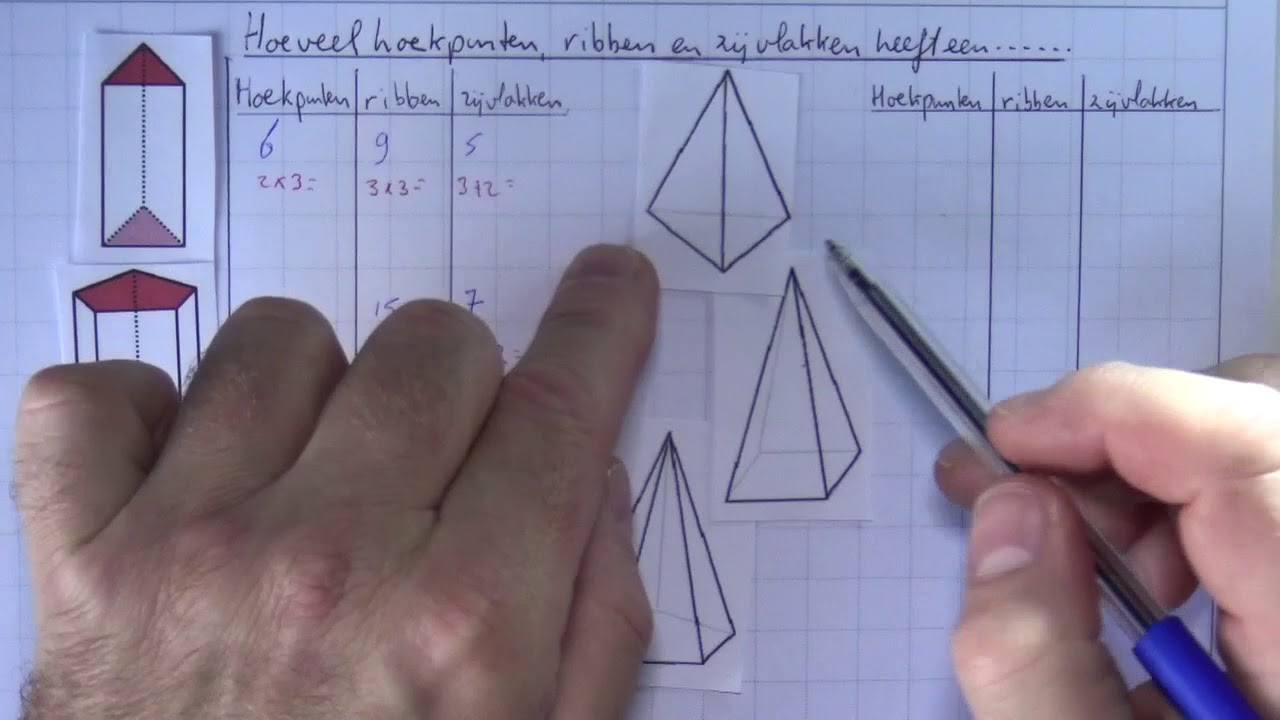 Hoeveel hoekpunten, ribben en zijvlakken heeft een.......
Hoekpunten ribben zijvlakken
6 9 5
2x3= 3x3= 3+2=
15 7
2=
Hoekpunten ribben zijvlakken